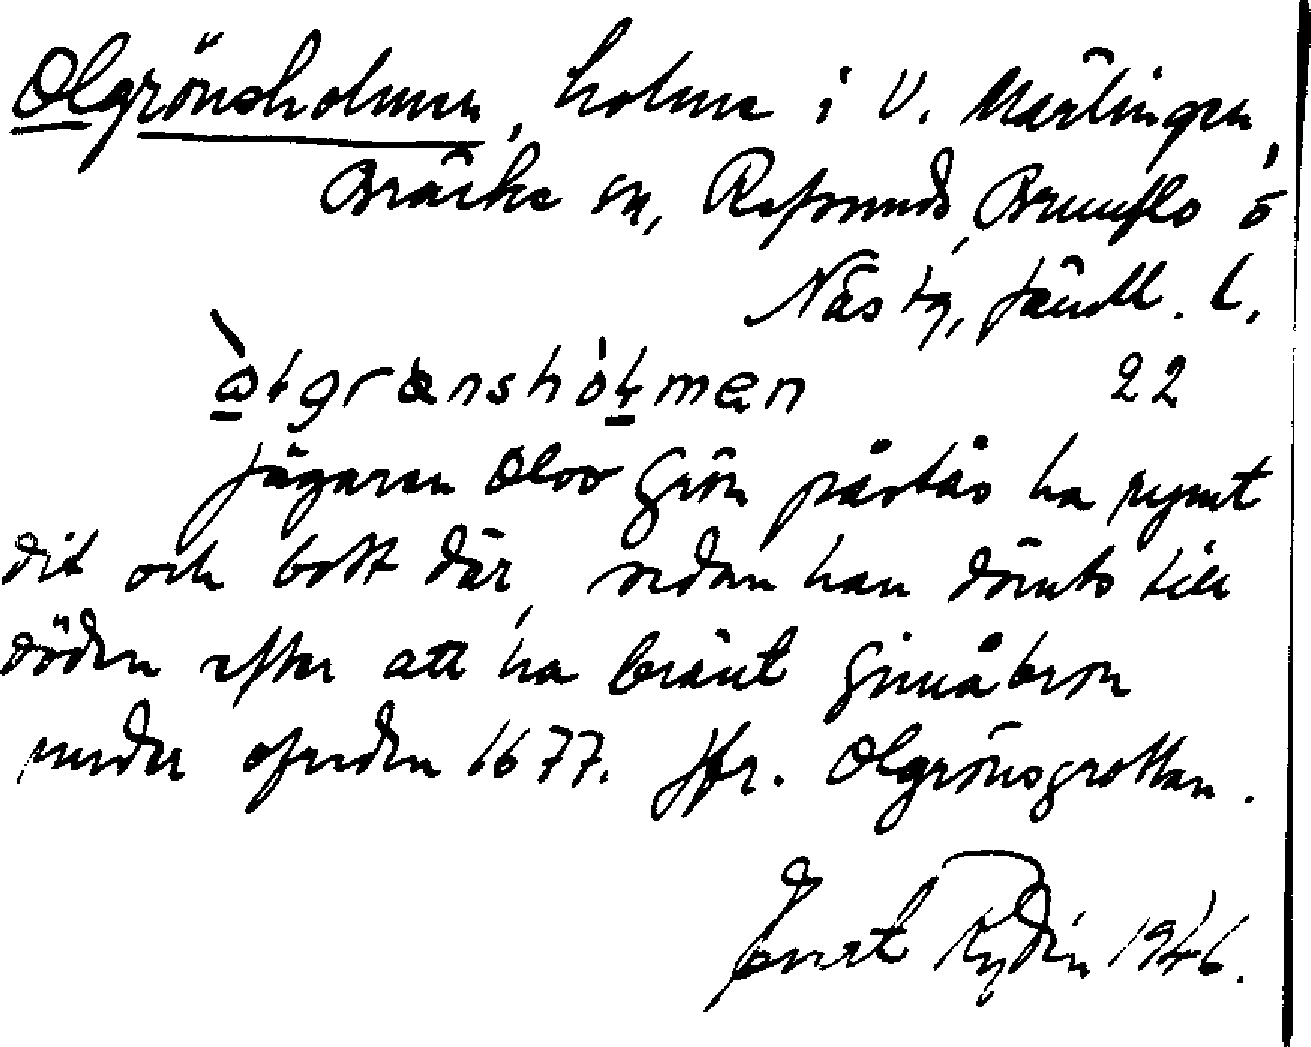 Olgrönsholmen, holme i V. Märlingen,
Bräcke sn, Refsunds, Brunflo o
Näs tg, Jämtl. l.
22
Jägaren Olov Grön påstås ha rymt
dit och bott där, sedan han dömts till
döden efter att ha bränt Gimåbron
under ofreden 1677. Jfr. Olgrönsgrottan.
Evert Rydin 1946.